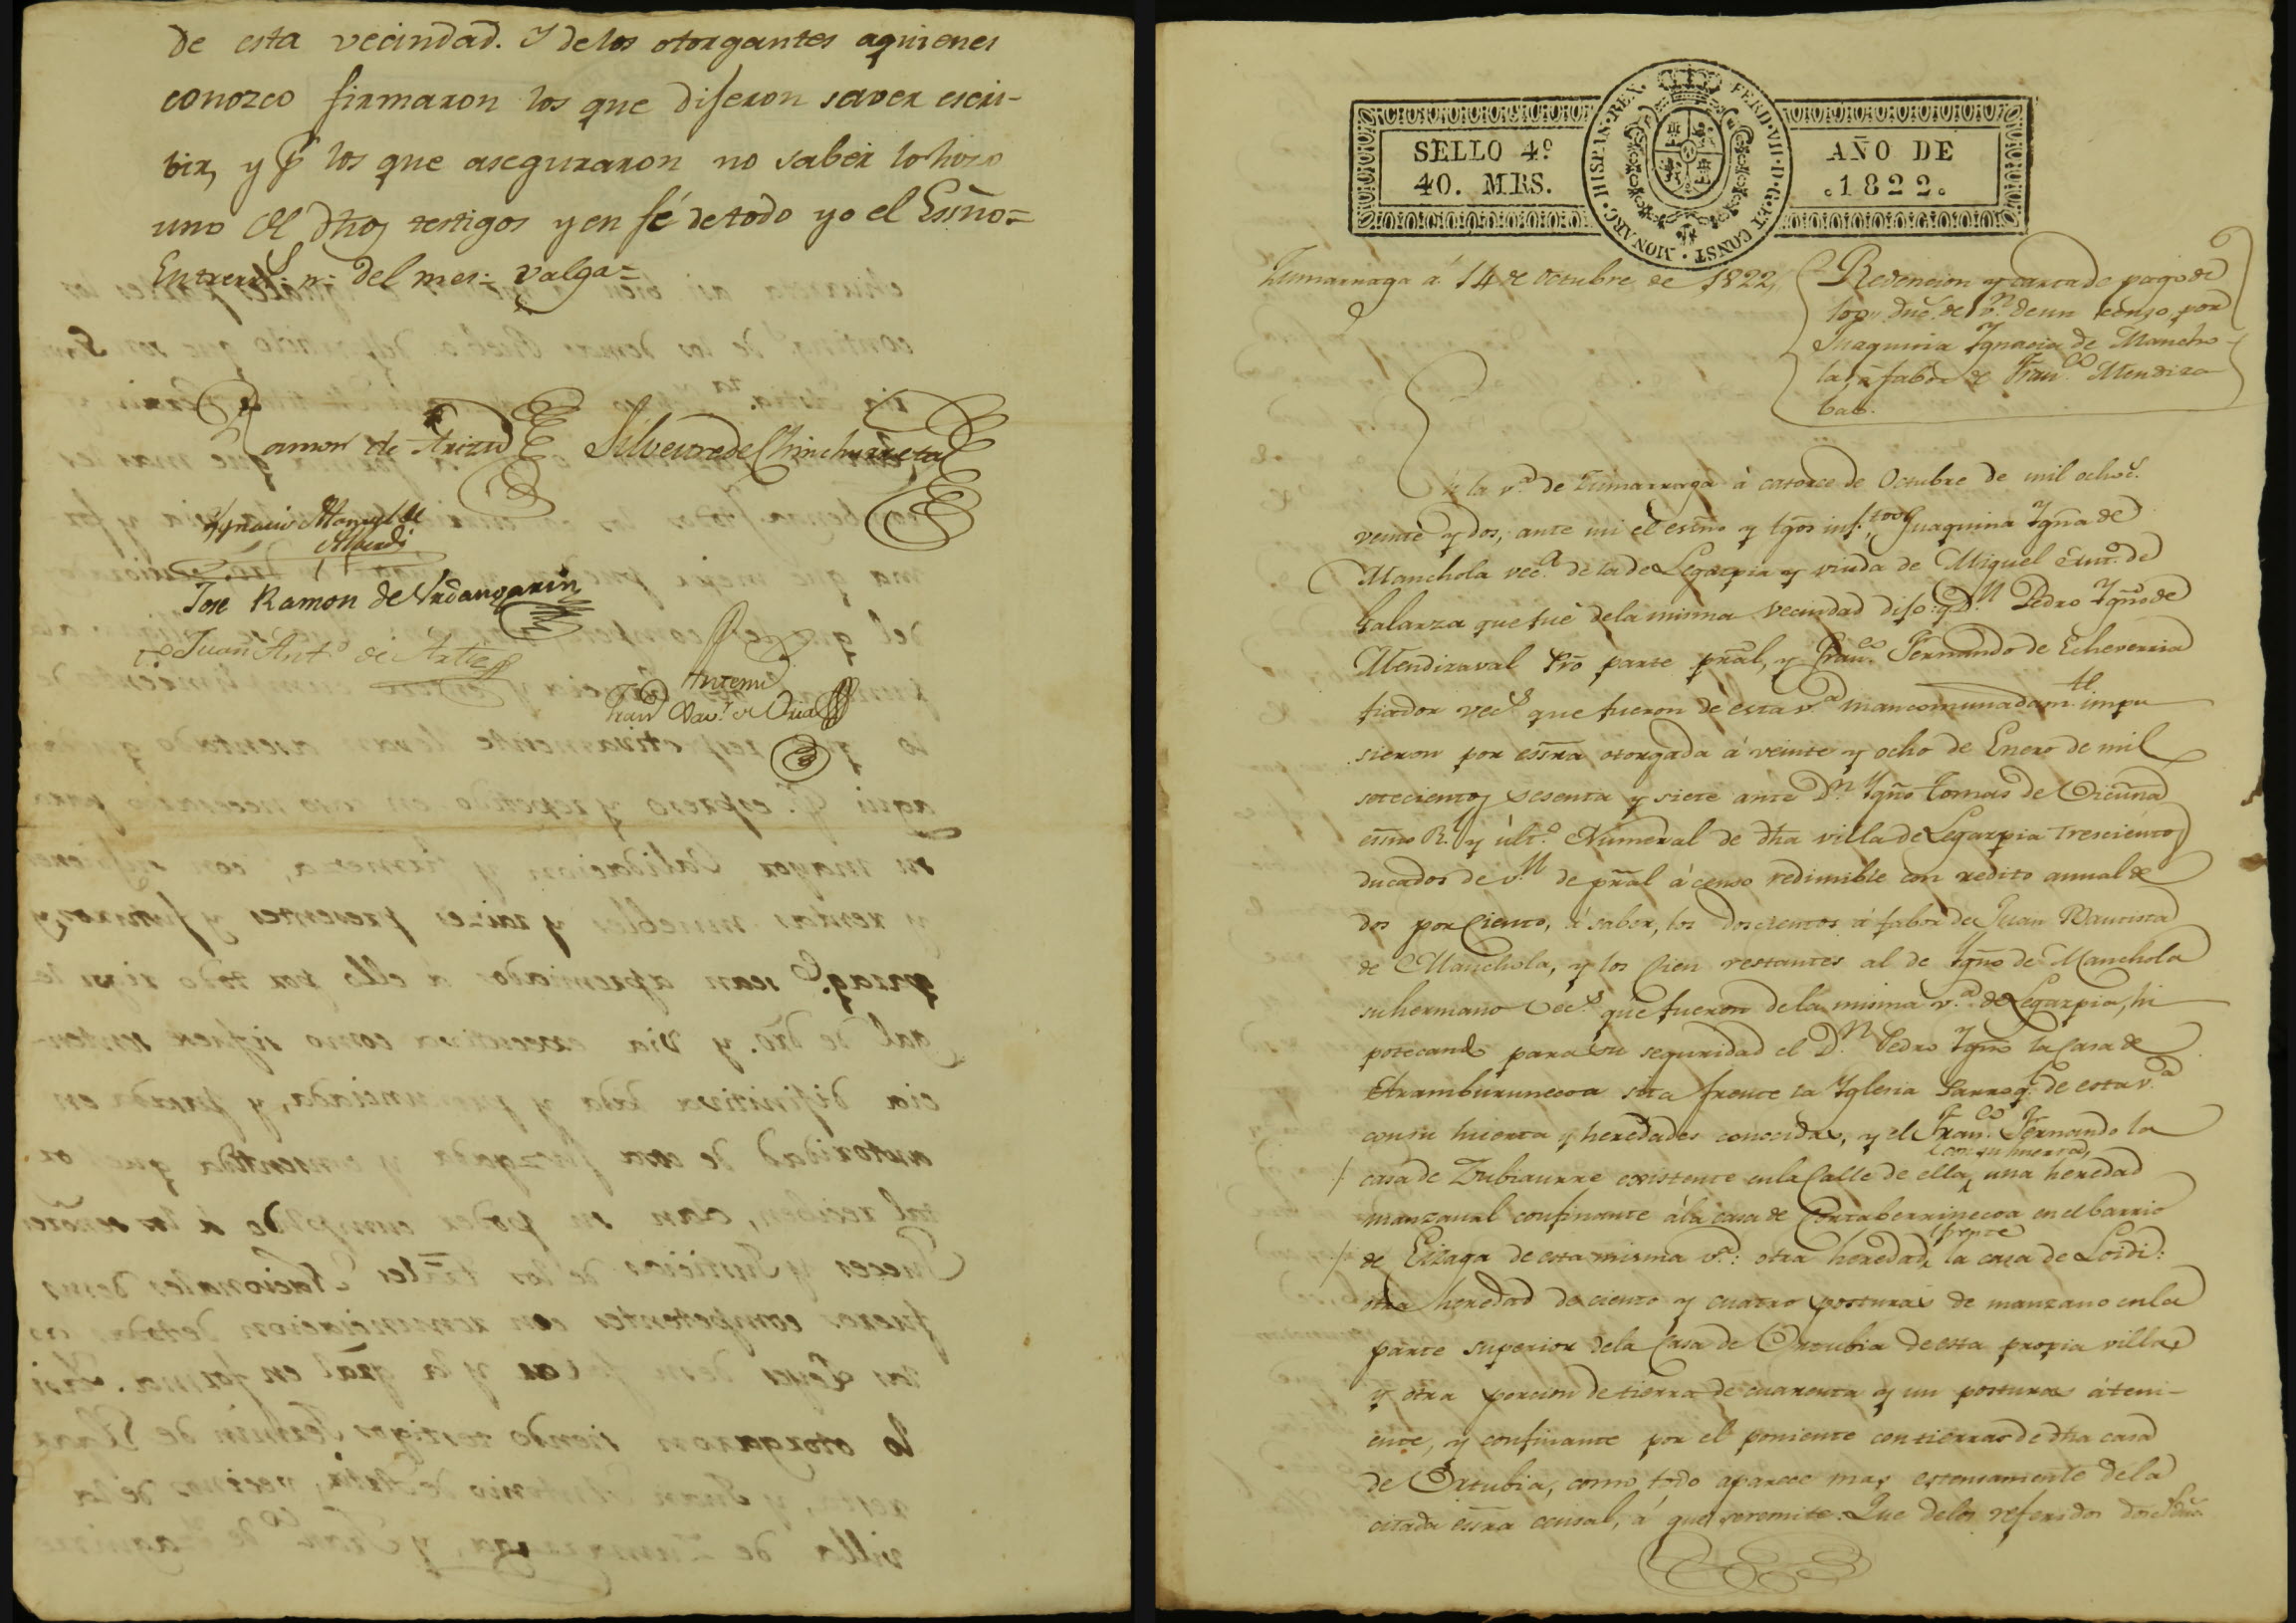 de esta vecindad. Y de los otorgantes aquienes
conozco firmaron los que diferon saver escri-
bir, y p.r los que aseguraron no saber lo hizo
uno de dhos testigos y en fé de todo yo el Essño=
Entrerr.s: n: del mes: valga=
Ramon de Arizti Silvestre de Chinchurreta
Ygnacio Manuel de
Alberdi
Jose Ramon de Urdangarin
to. Juan Ant.o de Artiz
Antemi
Fran.co Xav.r de Oria
SELLO 4.º
40. MRS.
HISPAN. REX. FERD. VII. D. G. ET CONST. MONARC.
AÑO DE
1822.
Zumarraga á 14 de Octubre de 1822,
Redencion y carta de pago de
100, duc.s de v.n de un censo, por
Juaquina Ygnacia de Mancho-
la, á fabor de Fran.co Mendiza
bal.
En la v.a de Zumarraga á catorce de Octubre de mil ochoc.s
veinte y dos, ante mi el essno y tgos inf.tos Juaquina Ygña de
Manchola vec.a de la de Legazpia y viuda de Miguel Ant.o de
Galarza que fué dela misma vecindad dijo: q D.n Pedro Ygño de
Mendizaval Pro parte pral, y Fran.co Fernando de Echeverria
fiador vec.s que fueron de esta v.a mancomunadam.te impu
sieron por essra otorgada á veinte y ocho de Enero de mil
setecientos sesenta y siete ante D.n Ygño Tomas de Vicuña
essno R. y últ.o Numeral de dha villa de Legazpia trescientos
ducados de v.n de pral á censo redimible con redito annual de
dos por Ciento, á saber, los doscientos á fabor de Juan Bautista
de Manchola, y los Cien restantes al de Ygño de Manchola
su hermano vec.s que fueron de la misma v.a de Legazpia, hi
potecando para su seguridad el D.n Pedro Ygño la Casa de
Aramburunecoa sita frente la Yglesia Parroq.l de esta v.a
con su huerta y heredades conocidas, y el Fran.co Fernando la
con su huerta,
/ casa de Zubiaurre existente en la Calle de ella, una heredad
manzanal confinante á la casa de Cortaberrinecoa en el barrio
frente
/ de Eizaga de esta misma v.a: otra heredad la casa de Loidi:
otra heredad de ciento y cuatro posturas de manzano en la
parte superior de la Casa de Ortubia de esta propia villa,
y otra porcion de tierra de cuarenta y un posturas áteni-
ente, y confinante por el poniente con tierras de dha casa
de Ortubia, como todo aparece mas estensamente de la
citada essra censal, á que se remite. Que de los referidos